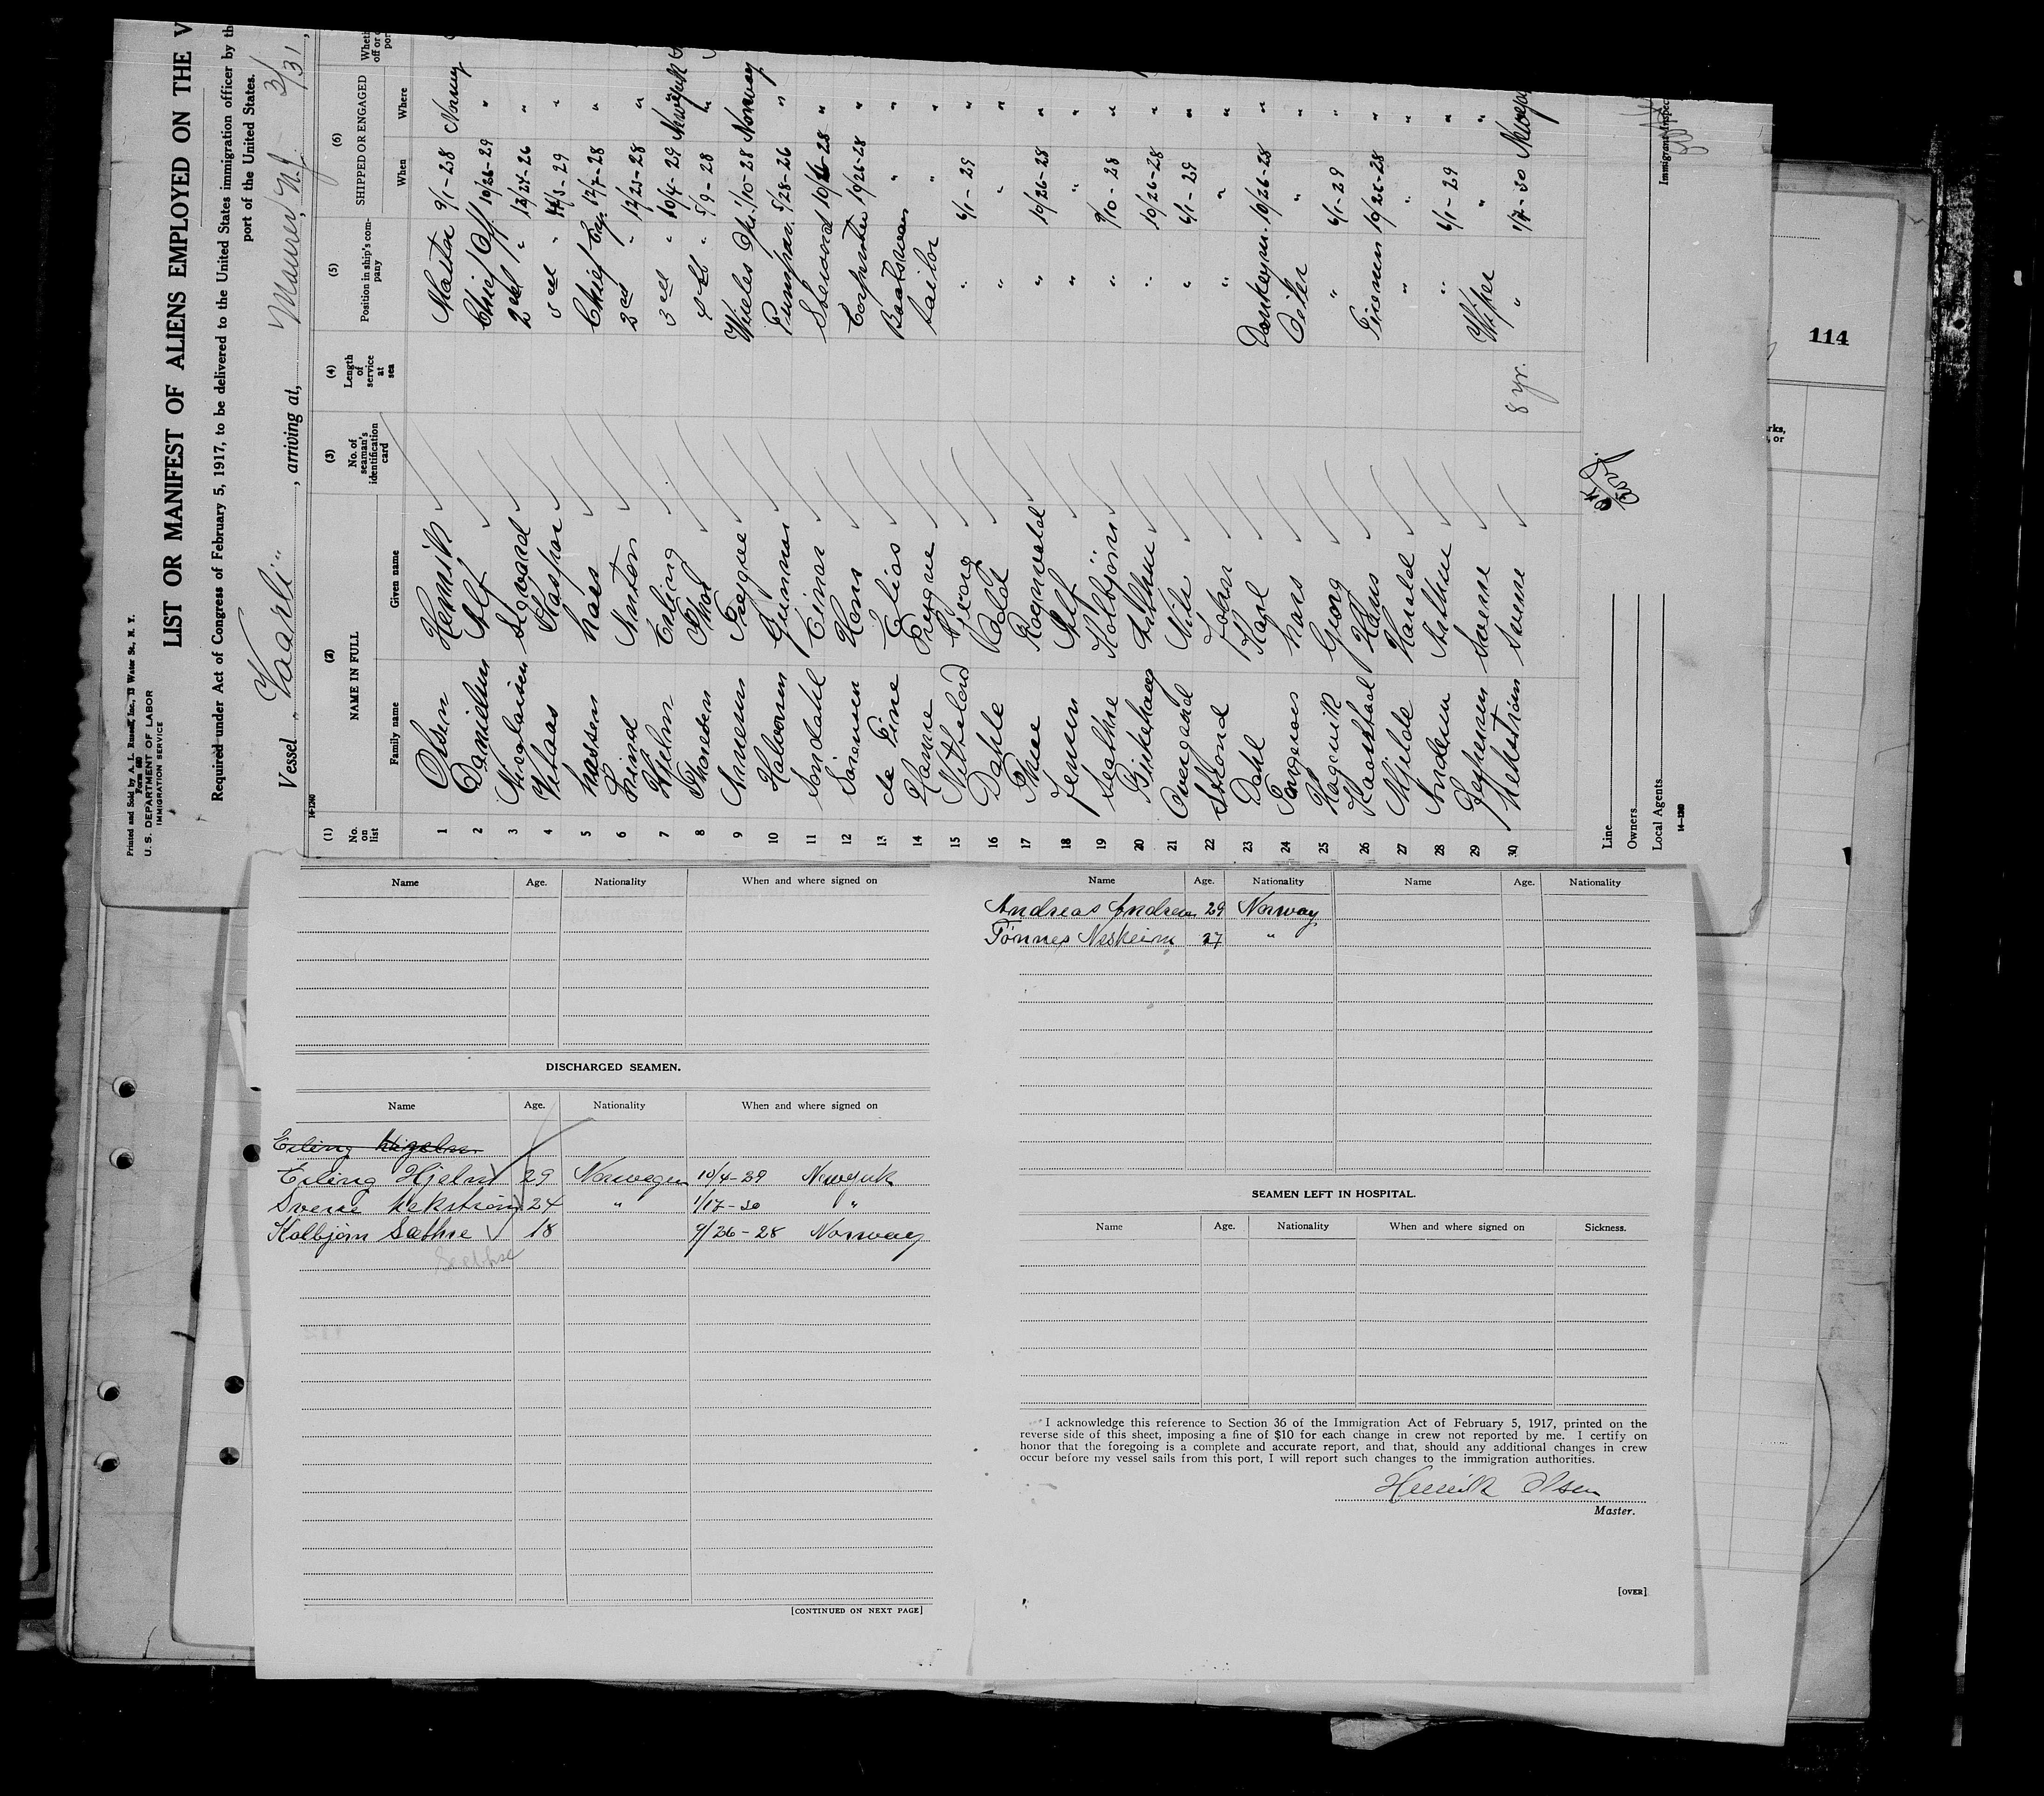 Printed and Sold by A. L. Russell, Inc., 13 Water St., N. Y.
Form 680
U. S. DEPARTMENT OF LABOR
IMMIGRATION SERVICE
LIST OR MANIFEST OF ALIENS EMPLOYED ON THE V
Required under Act of Congress of February 5, 1917, to be delivered to the United States immigration officer by th
port of the United States.
Vessel "Vaarli", arriving at, Maurer, N.J. 3/31,
14-1240
(1) No. on list (2) NAME IN FULL Family name Given name (3) No. of seaman's identification card (4) Length of service at sea (5) Position in ship's company (6) SHIPPED OR ENGAGED When Where
1 Olsen Henrik Master 9/1-28 Norway
2 Danielsen Alf Chief Off 10/26-29 "
3 Nicolaisen Sigvard 2nd " 12/27-26 "
4 Kaspar 3rd " 29 "
5 Hansen Hans Chief Eng. 12/7-28 "
6 Lind Anton 2nd " 12/23-28 "
7 Hjelm Erling 3rd " 10/4-29 Newyork
8 Thoresen Thor 4th " 5/9-28 "
9 Trygve 1/10-28 Norway
10 Halvorsen Gunnar Pumpman 5/28-26 "
11 Einar Steward 10/26-28 "
12 Sørensen Hans Carpenter 10/26-28 "
13 de Fine Elias Boatswain " "
14 Hamre Trygve Sailor " "
15 Georg " 6/1-29 "
16 Dahle " " "
17 Rognvald " 10/26-28 "
18 Jensen Alf " " "
19 Seathre Kolbjörn " 9/10-28 "
20 Birkehaug Arthur " 10/26-28 "
21 Overgaard Nils " 6/1-29 "
22 Strand John " " "
23 Dahl Karl Donkeym. 10/26-28 "
24 Hans Oiler " "
25 Hagevik Georg " 6/1-29 "
26 Kaarstad Hans Firemen 10/26-28 "
27 Mjelde Harald " " "
28 Andersen Arthur " 6/1-29 "
29 Jespersen Sverre Wiper " "
30 Wekström Sverre 8 yr. " 1/17-30 Newyork
Line
Owners
Local Agents
14-1240
Immigrant Inspec
114
Name Age. Nationality When and where signed on
DISCHARGED SEAMEN.
Name Age. Nationality When and where signed on
Erling Hjelm
Erling Hjelm 29 Norwegen 10/4-29 Newyork
Sverre Wekström 24 " 1/17-30 "
Kolbjörn Sæthre 18 9/26-28 Norway
Seethre
[CONTINUED ON NEXT PAGE]
Name Age. Nationality Name Age. Nationality
Andreas Andresen 29 Norway
Tönnes Neskeim 27 "
SEAMEN LEFT IN HOSPITAL.
Name Age. Nationality When and where signed on Sickness.
I acknowledge this reference to Section 36 of the Immigration Act of February 5, 1917, printed on the
reverse side of this sheet, imposing a fine of $10 for each change in crew not reported by me. I certify on
honor that the foregoing is a complete and accurate report, and that, should any additional changes in crew
occur before my vessel sails from this port, I will report such changes to the immigration authorities.
Henrik Olsen
Master.
[OVER]